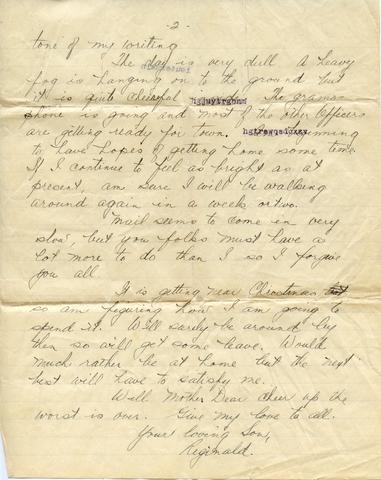 - 2 -
tone of my writing
The day is very dull A heavy
fog is hanging on to the ground but
it is quite cheerful The gramo-
phone is going and most of the other Officers
are getting ready for town. beginning
to have hopes of getting home some time
If I continue to feel as bright as at
present, am sure I will be walking
around again in a week or two.
Mail seems to come in very
slow, but you folks must have a
lot more to do than I so I forgive
you all
It is getting near Christmas
so am figuring how I am going to
spend it. Will surely be around by
then so will get some leave. Would
much rather be at home but the next
best will have to satisfy me.
Well Mother Dear cheer up the
worst is over. Give my love to all.
Your loving Son,
Reginald.